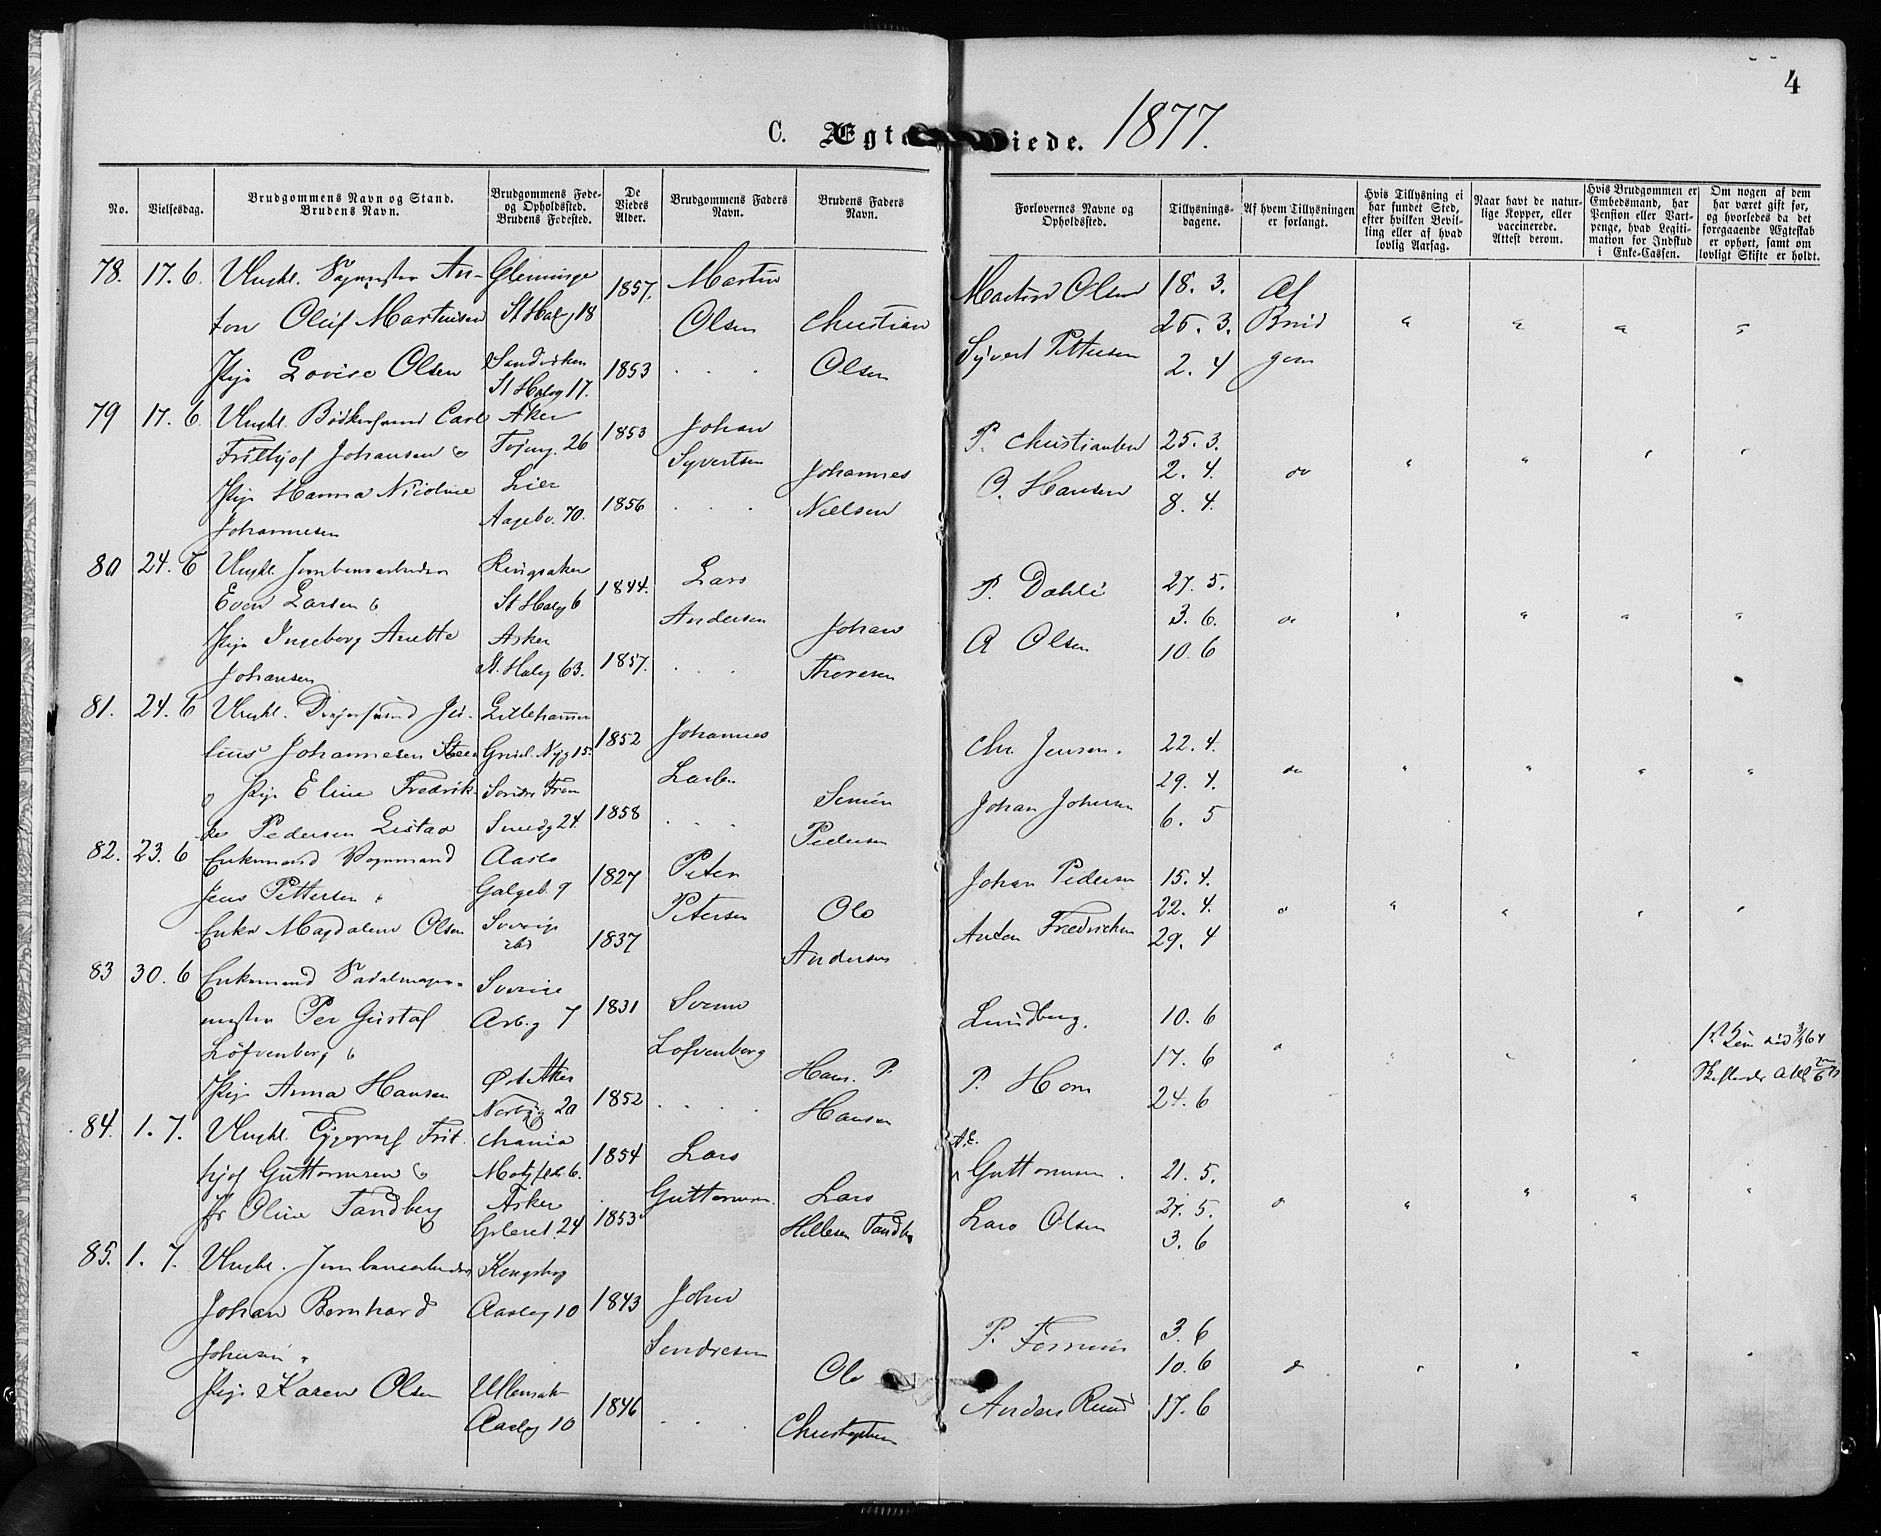 4
C. Ægte viede. 1877.
No.
Vielsesdag.
Brudgommens Navn og Stand.
Brudens Navn.
Brudgommens Føde-
og Opholdssted.
Brudens Fødested.
De
Viedes
Alder.
Brudgommens Faders
Navn.
Brudens Faders
Navn.
Forlovernes Navne og
Opholdssted.
Tillysnings-
dagene.
Af hvem Tillysningen
er forlangt.
Hvis Tillysning ei
har fundet Sted,
efter hvilken Bevil-
ling eller af hvad
lovlig Aarsag.
Naar havt de natur-
lige Kopper, eller
vaccinerede.
Attest derom.
Hvis Brudgommen er
Embedsmand, har
Pension eller Vart-
penge, hvad Legiti-
mation for Indskud
i Enke-Cassen.
Om nogen af dem
har været gift før,
og hvorledes da det
foregaaende Ægteskab
er ophørt, samt om
lovligt Skifte er holdt.
78. 17. 6. Ungkl. An- 1857. Martin Martin Olsen 18. 3. Af
ton Oluf Martinsen St Halvg 18 Olsen Christian 25. 3. Brud
Pige Lovise Olsen Sandviken 1853 Olsen Syvert Pettersen 2. 4 gom
St Halvg 17.
79 17. 6. Ungkl. Bødkersvend Carl Aker 1853 Johan P. Christiansen 25. 3.
Frithjof Johansen & 26 Syvertsen Johannes 2. 4. do
Pige Hanna Nicoline Lier 1856 Nielsen O. Hansen 8. 4.
Johannesen Aagebv. 70.
80 24. 6 Ungkl. Jernbanearbeider Ringsaker 1844. Lars P. Dahli 27. 5.
Even Larsen & St Halvg 6 Andersen Johan 3. 6. do
Pige Ingeborg Anette Asker 1857. Thoresen A Olsen 10. 6
Johansen St. Halvg 63.
81. 24. 6 Ungkl. Dreiersvend Ju- Lillehammer 1852 Johannes Chr. Jensen. 22. 4.
lius Johannesen Steen 15. Larsen 29. 4. do
& Pige Eline Fredrik- Søndre Fron 1858 Simen Johan Johnsen 6. 5
ke Pedersen Listad Smedg 24. Pedersen
82. 23. 6 Enkemand Vognmand Aaslo 1827 Peter Johan Pedersen 15. 4.
Jens Pettersen & Galgeb. 9 Petersen Ole 22. 4.
Enke Magdalene Olsen Sverige 1837 Andersen Anton Fredriksen 29. 4
83 30. 6 Enkemand Sadelmager- Sverige 1831 Svenn Lundberg. 10. 6
mester Per Gustaf 7 Löfvenberg 17. 6
Löfvenberg & Hans P.
Pige Anna Hansen Øst Aker 1852 Hansen P. Horn 24. 6
Norbyg 20
84. 1. 7. Ungkl. Frit- Chania 1854 Lars Guttormsen. 21. 5.
hjof Guttormsen & 6. Guttormsen Lars 27. 5.
Olina Tandberg Asker 1853 Hellesen Tandb Lars Olsen 3. 6
Grøleret. 24
85. 1. 7. Ungkl. Jernbanearbeider Kongsbrg 1843 John 3. 6
Johan Bernhard Aaslog 10 Sondresen Ole 10. 6
Johnsen &
Pige Karen Olsen Ullensak 1846 Christophersen Anders Ruud 17. 6
Aaslog 10